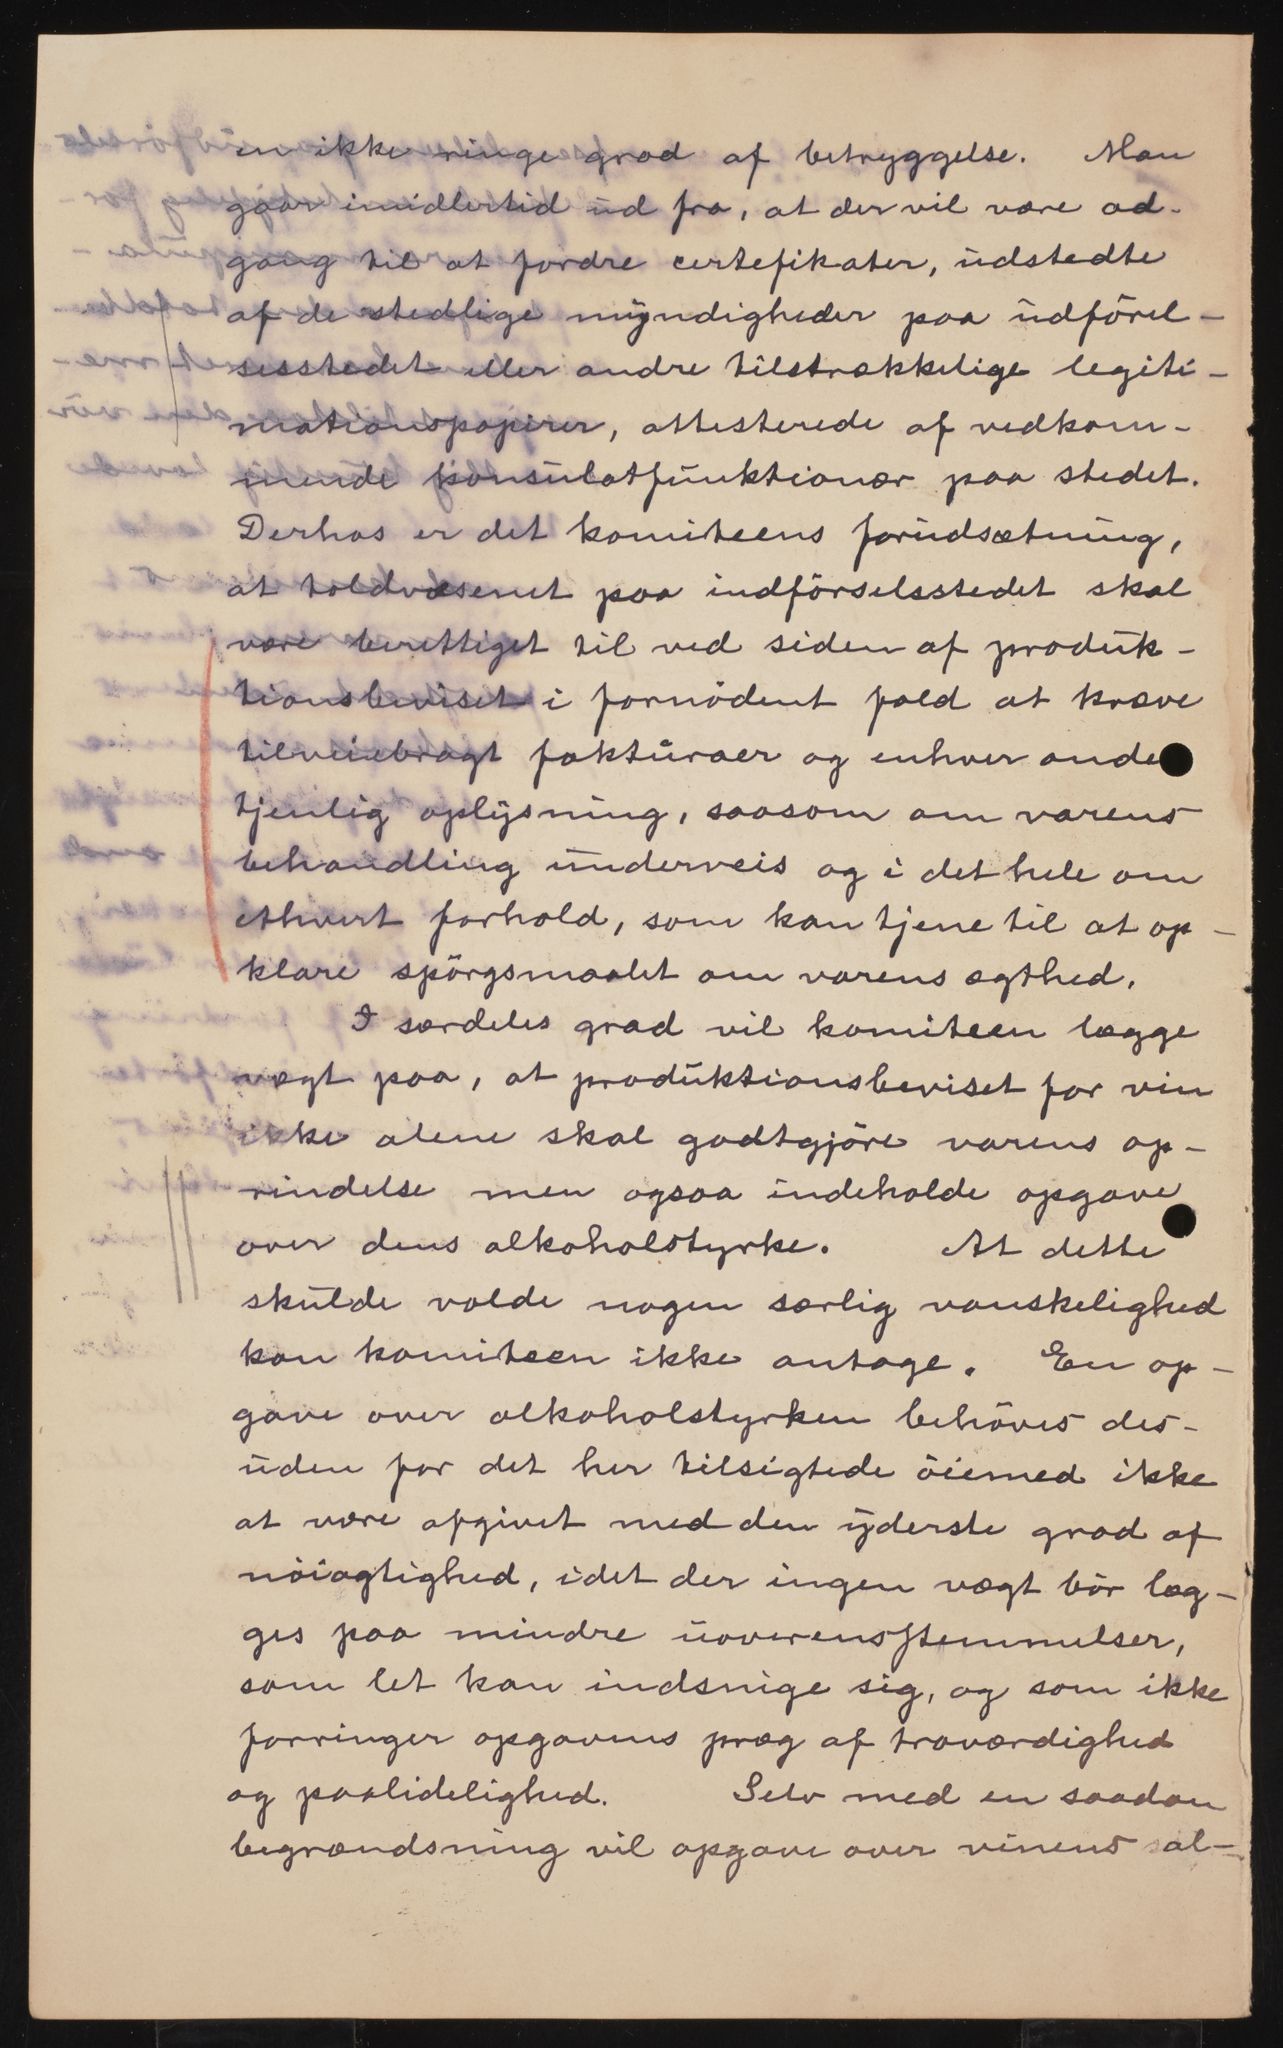 en ikke ringe grad af betryggelse. Man
gaar imidlertid ud fra, at der vil være ad-
gang til at fordre certefikater, udstedte
af de stedlige myndigheder paa udförel-
sesstedet eller andre tilstrækkelige legiti-
mationspapirer, attesterede af vedkom-
mende konsulatfunktionær paa stedet.
Derhos er det komiteens forudsætning,
at toldvæsenet paa indförselsstedet skal
være berettiget til ved siden af produk-
tionsbeviset i fornödent fald at kræve
tilveiebragt fakturaer og enhver ande
tjenlig oplysning, saasom om varens
behandling underveis og i det hele om
ethvert forhold, som kan tjene til at op-
klare spörgsmaalet om varens ægthed.
I særdeles grad vil komiteen lægge
vægt paa, at produktionsbeviset for vin
ikke alene skal godtgjöre varens op-
rindelse men ogsaa indeholde opgave
over dens alkoholstyrke. At dette
skulde volde nogen særlig vanskelighed
kan komiteen ikke antage. En op-
gave over alkoholstyrken behöves des-
uden for det her tilsigtede öiemed ikke
at være afgivet med den yderste grad af
nöiagtighed, idet der ingen vægt bör læg-
ges paa mindre uoverensstemmelser,
som let kan indsnige sig, og som ikke
forringer opgavens præg af troværdighed
og paalidelighed. Selv med en saadan
begrændsning vil opgave over vinens al-